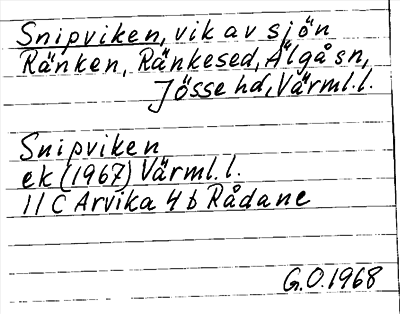 Snipviken, vik av sjön
Ränken, Ränkesed, Älgå sn,
Jösse hd, Värml. l.
Snipviken
ek (1967) Värml. l.
11 C Arvika 4 b Rådane
G.O. 1968